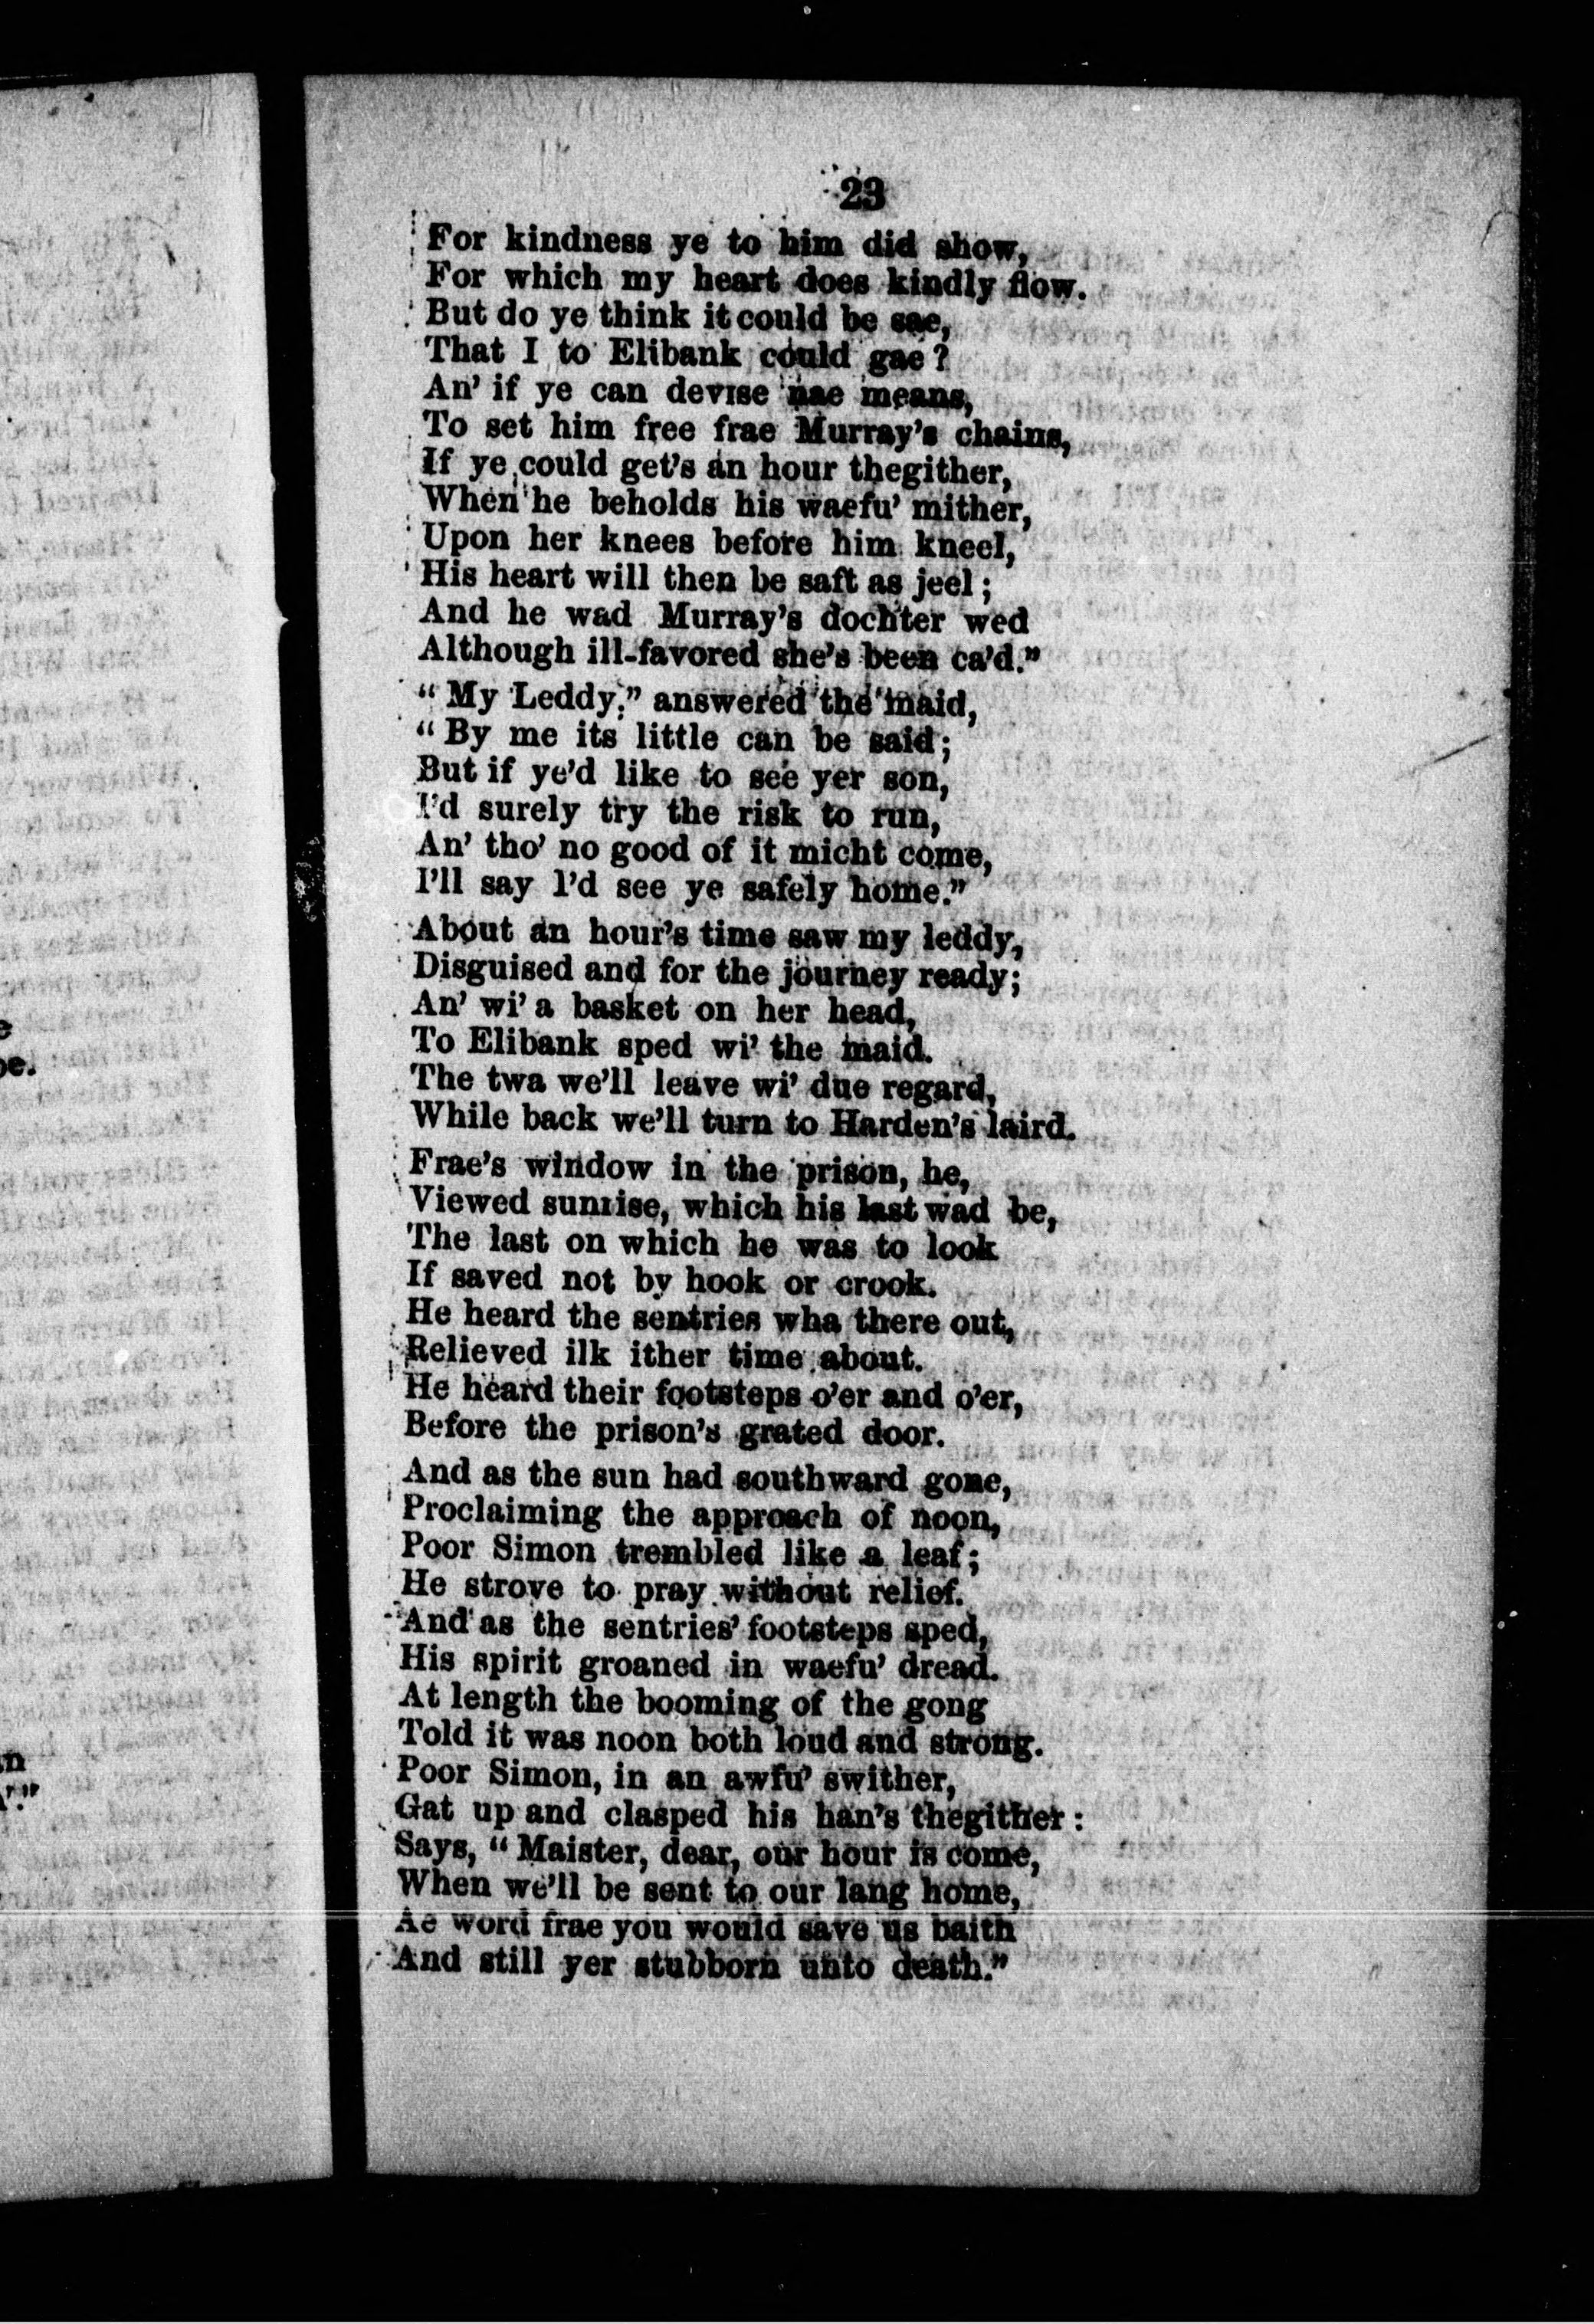 23
For kindness ye to him did show,
For which my heart does kindly flow.
But do ye think it could be sae,
That I to Elibank could gae?
An' if ye can devise nae means,
To set him free frae Murray's chains,
If ye could get's an hour thegither,
When he beholds his waefu' mither,
Upon her knees before him kneel,
His heart will then be saft as jeel;
And he wad Murray's dochter wed
Although ill-favored she's been ca'd."
"My Leddy," answered the maid,
"By me its little can be said;
But if ye'd like to see yer son,
I'd surely try the risk to run,
An' tho' no good of it micht come,
I'll say I'd see ye safely home."
About an hour's time saw my leddy,
Disguised and for the journey ready;
An' wi' a basket on her head,
To Elibank sped wi' the maid.
The twa we'll leave wi' due regard,
While back we'll turn to Harden's laird.
Frae's window in the prison, he,
Viewed sunrise, which his last wad be,
The last on which he was to look
If saved not by hook or crook.
He heard the sentries wha there out,
Relieved ilk ither time about.
He heard their footsteps o'er and o'er,
Before the prison's grated door.
And as the sun had southward gone,
Proclaiming the approach of noon,
Poor Simon trembled like a leaf;
He strove to pray without relief.
And as the sentries' footsteps sped,
His spirit groaned in waefu' dread.
At length the booming of the gong
Told it was noon both loud and strong.
Poor Simon, in an awfu' swither,
Gat up and clasped his han's thegither:
Says, "Maister, dear, our hour is come,
When we'll be sent to our lang home,
Ae word frae you would save us baith
And still yer stubborn unto death."